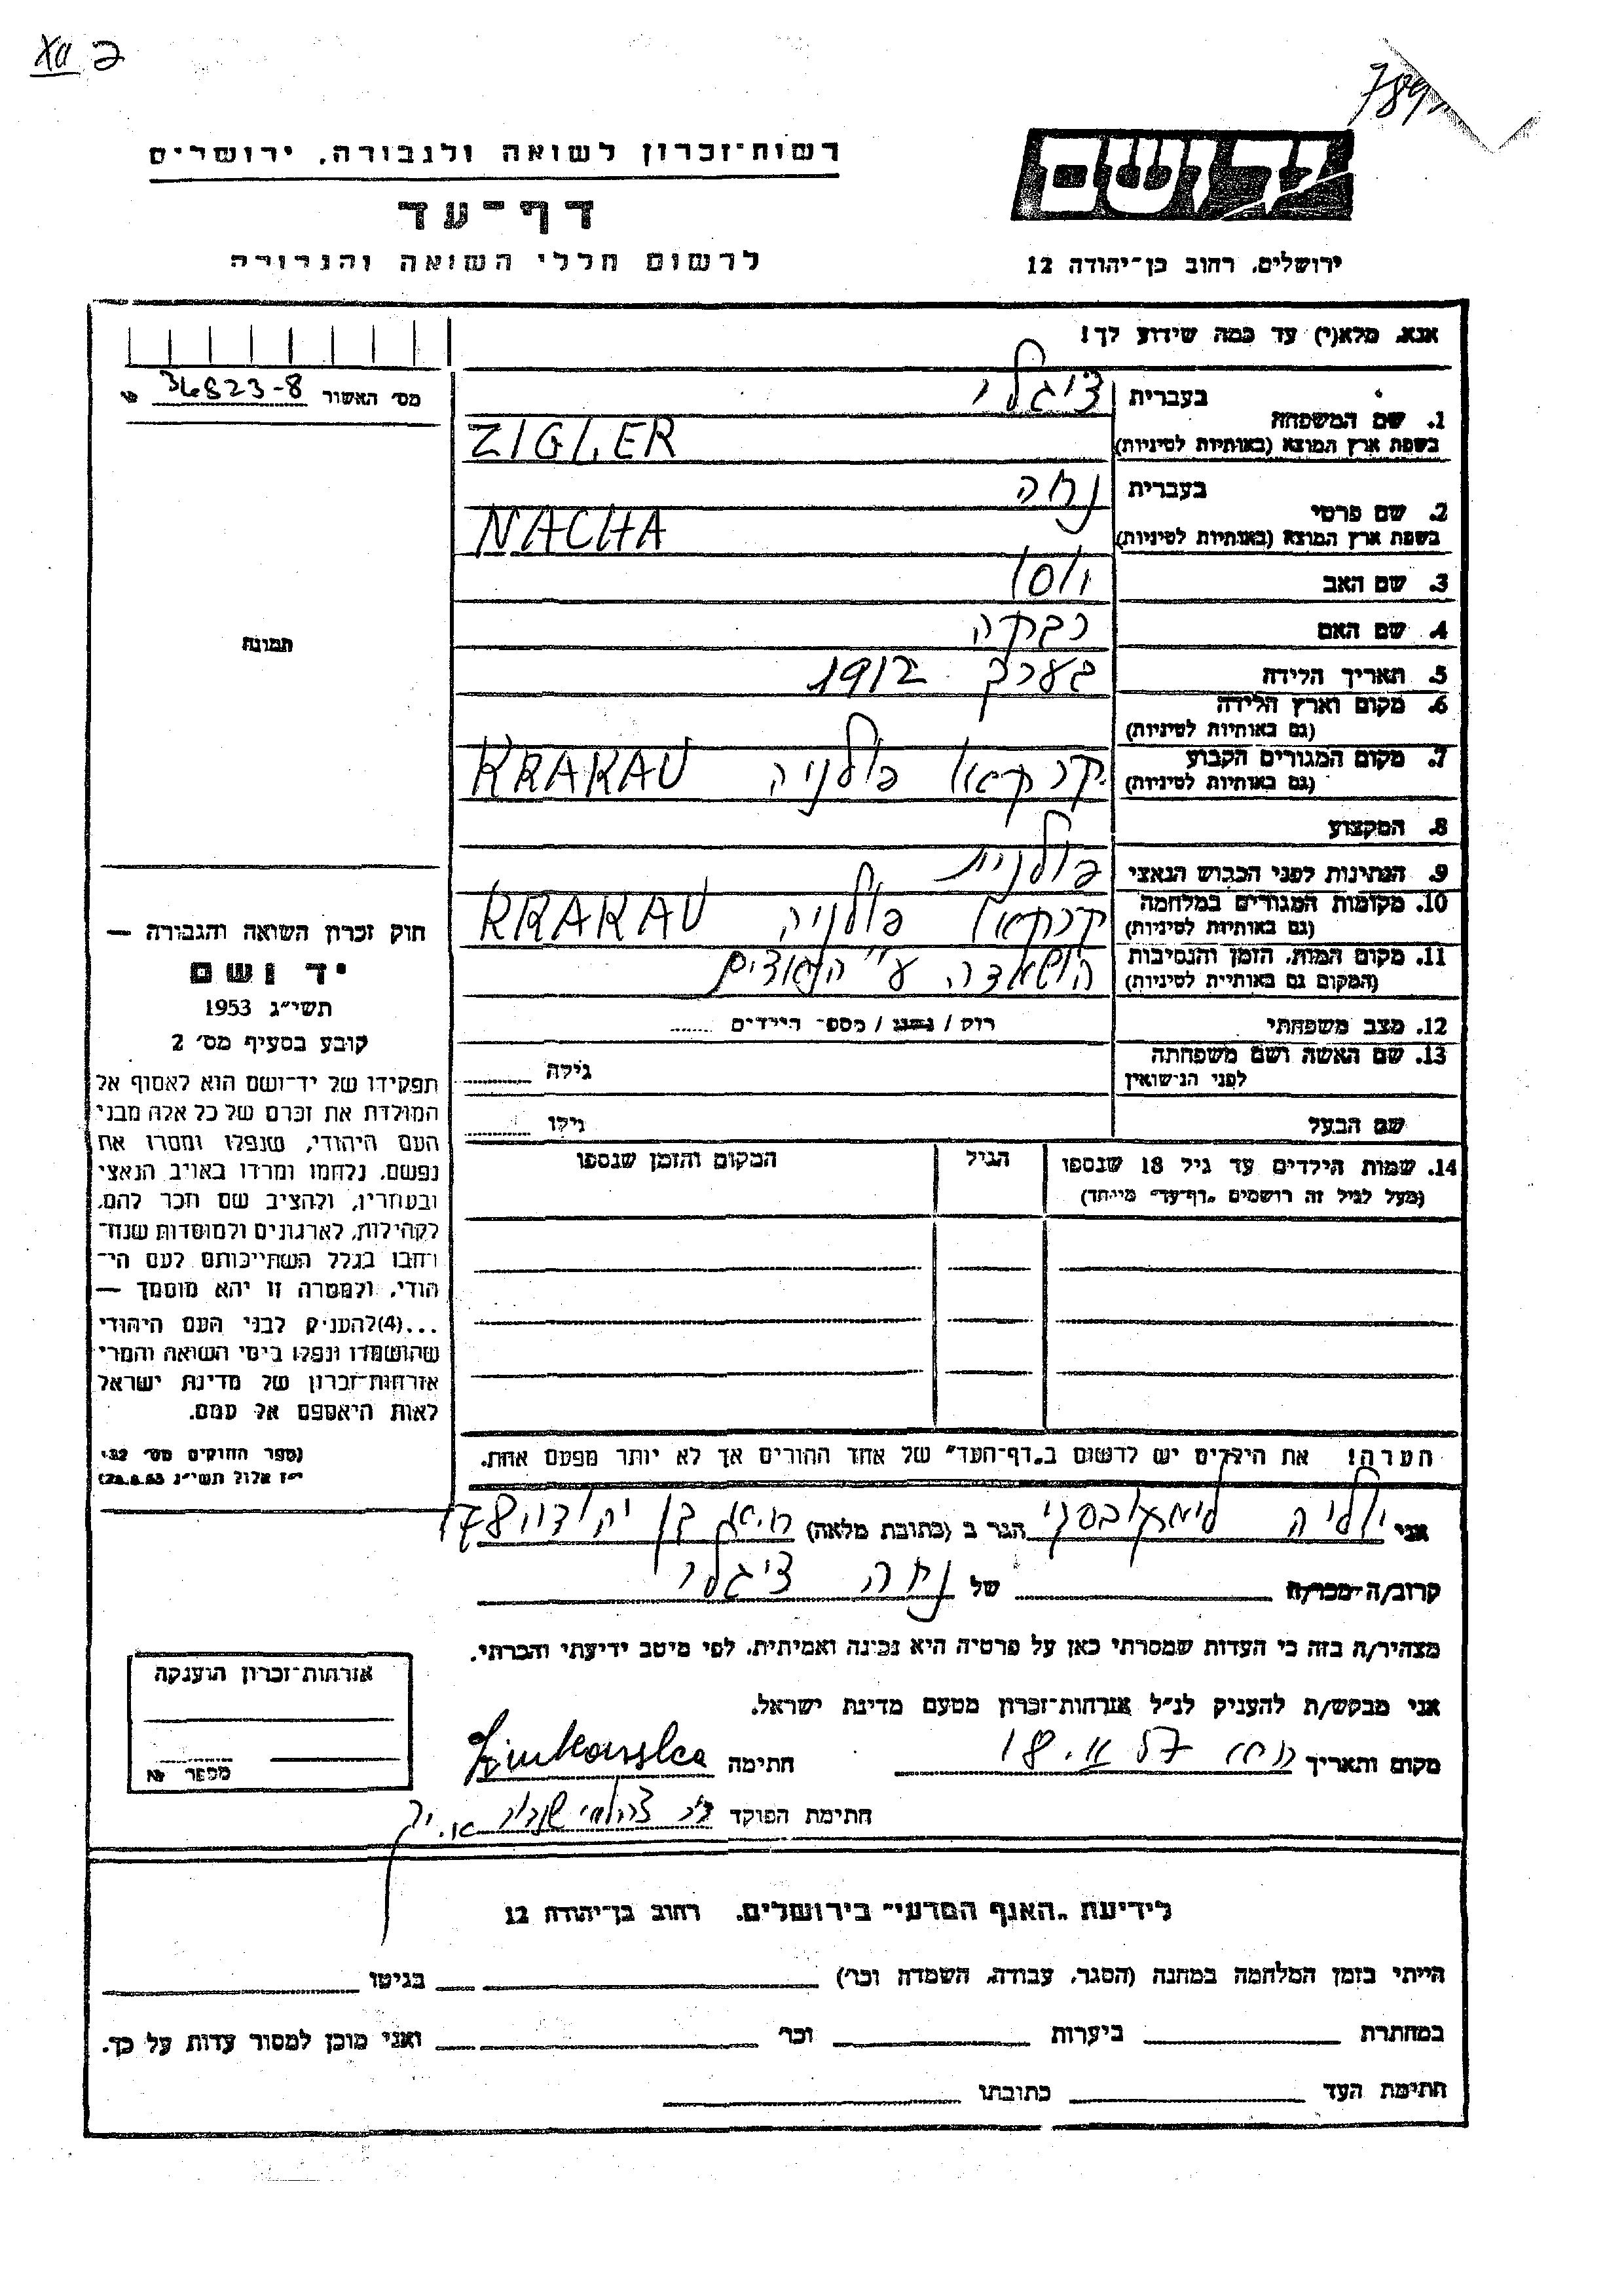 XII 2
789
רשות־זכרון לשואה ולגבורה, ירושלים
יד ושם
דף־עד
לרשום חללי השואה והגבורה
ירושלים, רחוב בן־יהודה 12
אנא, מלא(י) עד כמה שידוע לך!
מס׳ האשור 36823-8
1. שם המשפחה בעברית ציגלר
בשפת ארץ המוצא (באותיות לטיניות) ZIGLER
2. שם פרטי בעברית נחה
בשפת ארץ המוצא (באותיות לטיניות) NACHA
3. שם האב
4. שם האם רבקה
5. תאריך הלידה בערך 1912
6. מקום וארץ הלידה
(גם באותיות לטיניות)
7. מקום המגורים הקבוע
(גם באותיות לטיניות) קרקאו פולניה KRAKAU
8. המקצוע
9. הנתינות לפני הכבוש הנאצי פולנית
10. מקומות המגורים במלחמה
(גם באותיות לטיניות) קרקאו פולניה KRAKAU
11. מקום המות, הזמן והנסיבות
(המקום גם באותיות לטיניות) הושמדה ע״י הנאצים
12. מצב משפחתי רווק / נשוי / מספר הילדים
13. שם האשה ושם משפחתה גילה
לפני הנישואין
שם הבעל גילו
14. שמות הילדים עד גיל 18 שנספו הגיל המקום והזמן שנספו
(מעל לגיל זה רושמים „דף־עד״ מיוחד)
הערה! את הילדים יש לרשום ב„דף־העד״ של אחד ההורים אך לא יותר מפעם אחת.
תמונה
חוק זכרון השואה והגבורה —
יד ושם
תשי״ג 1953
קובע בסעיף מס׳ 2
תפקידו של יד־ושם הוא לאסוף אל
המולדת את זכרם של כל אלה מבני
העם היהודי, שנפלו ומסרו את
נפשם, נלחמו ומרדו באויב הנאצי
ובעוזריו, ולהציב שם וזכר להם,
לקהילות, לארגונים ולמוסדות שנח־
רבו בגלל השתייכותם לעם הי־
הודי, ולמטרה זו יהא מוסמך —
...(4)להעניק לבני העם היהודי
שהושמדו ונפלו בימי השואה והמרי
אזרחות־זכרון של מדינת ישראל
לאות היאספם אל עמם.
(ספר החוקים מס׳ 132,
י״ז אלול תשי״ג 28.8.53)
אני יוליה הגר ב (כתובת מלאה) בן יהודה 178
קרוב/ה מכר/ה של נחה ציגלר
מצהיר/ה בזה כי העדות שמסרתי כאן על פרטיה היא נכונה ואמיתית, לפי מיטב ידיעתי והכרתי.
אני מבקש/ת להעניק לנ״ל אזרחות־זכרון מטעם מדינת ישראל.
מקום ותאריך חתימה
חתימת הפוקד
אזרחות־זכרון הוענקה
מספר №
לידיעת „האגף המדעי״ בירושלים, רחוב בן־יהודה 12
הייתי בזמן המלחמה במחנה (הסגר, עבודה, השמדה וכר׳) בגיטו
במחתרת ביערות וכר׳ ואני מוכן למסור עדות על כך.
חתימת העד כתובתו